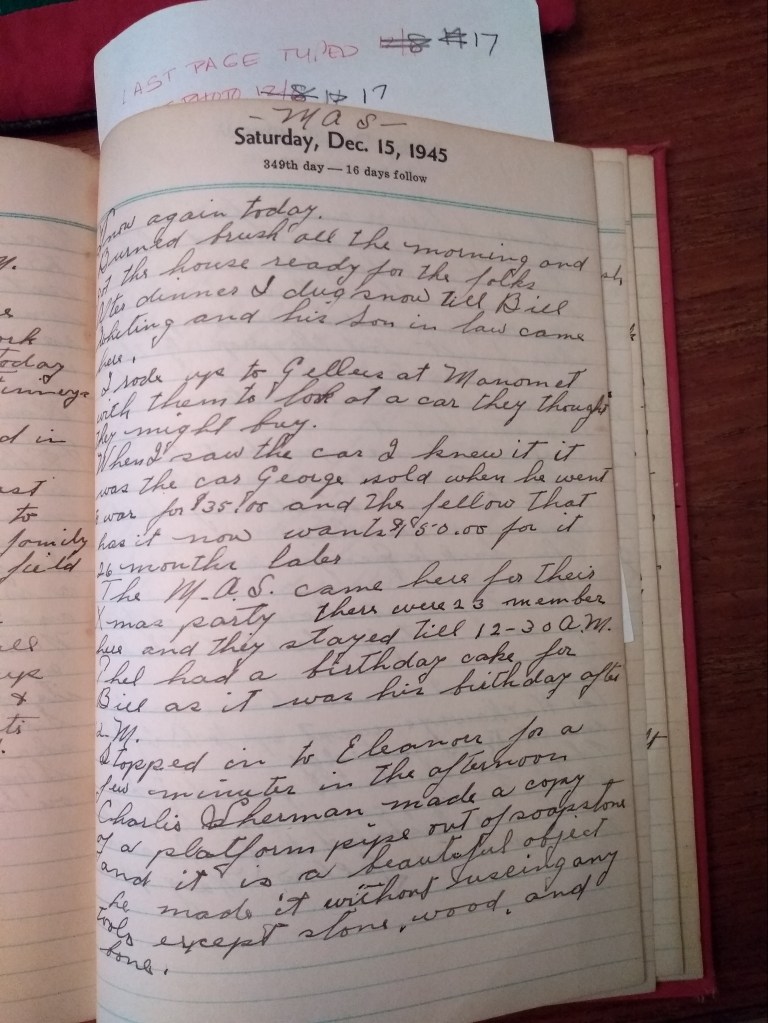 LAST PAGE TYPED 17
PHOTO 17
- M A S -
Saturday, Dec. 15, 1945
349th day — 16 days follow
Snow again today.
Burned brush all the morning and
got the house ready for the folks
After dinner I dug snow till Bill
and his Son in law came
here.
I rode up to Gellers at Manomet
with them to look at a car they thought
they might buy.
When I saw the car I knew it it
was the car George sold when he went
to war for $35.00 and the fellow that
has it now wants $950.00 for it
26 months later
The M.A.S. came here for their
Xmas party there were 23 member
here and they stayed till 12-30 A.M.
Phel had a birthday cake for
Bill as it was his birthday after
12 M.
Stopped in to Eleanor for a
few minutes in the afternoon
Charlie Sherman made a copy
of a platform pipe out of soapstone
and it is a beautiful object
he made it without useing any
tools except stone, wood, and
bone.
today
d in
to
family
field
up
&